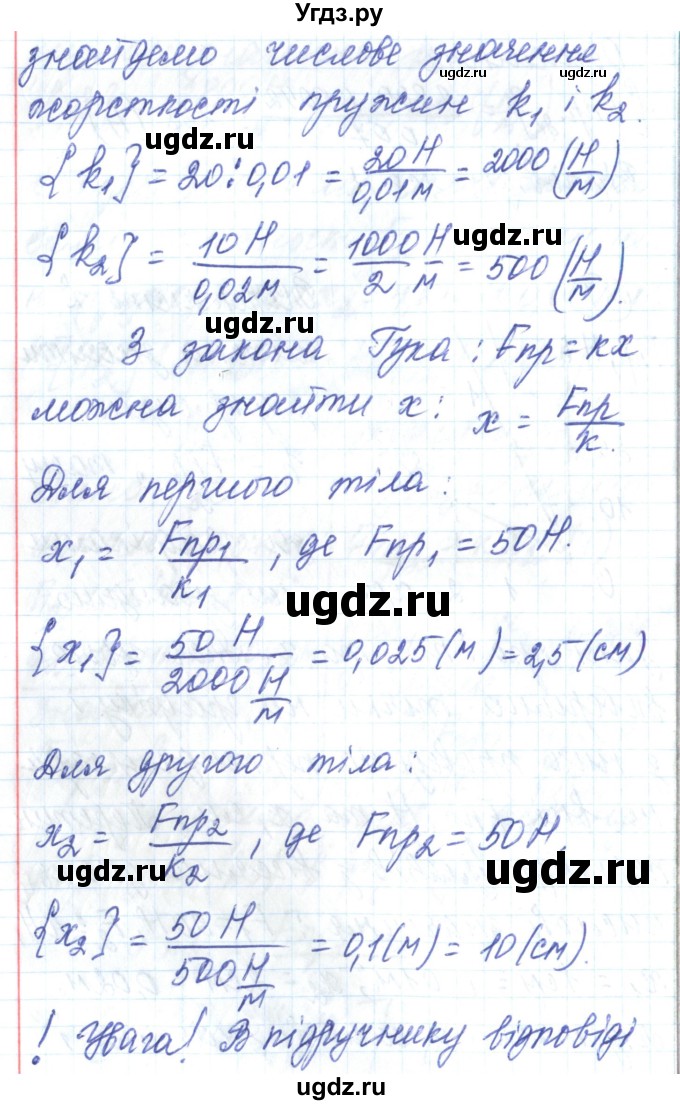 Угдз.ру
знайдемо числове значення
жорсткості пружин k₁ і k₂.
ugdz.ru
ugdz.ru
{k₁} = 20 : 0,01 = 20 Н / 0,01 м = 2000 (Н/м)
ugdz.ru
{k₂} = 10 Н / 0,02 м = 1000/2 Н/м = 500 (Н/м).
ugdz.ru
ugdz.ru
З закона Гука : Fпр = kx
ugdz.ru
можна знайти x : x = Fпр / k.
Для першого тіла :
x₁ = Fпр₁ / k₁ , де Fпр₁ = 50 Н.
ugdz.ru
{x₁} = 50 Н / 2000 Н/м = 0,025 (м) = 2,5 (см)
Для другого тіла :
x₂ = Fпр₂ / k₂ , де Fпр₂ = 50 Н.
ugdz.ru
ugdz.ru
{x₂} = 50 Н / 500 Н/м = 0,1 (м) = 10 (см).
! Увага! В підручнику відповіді
ugdz.ru